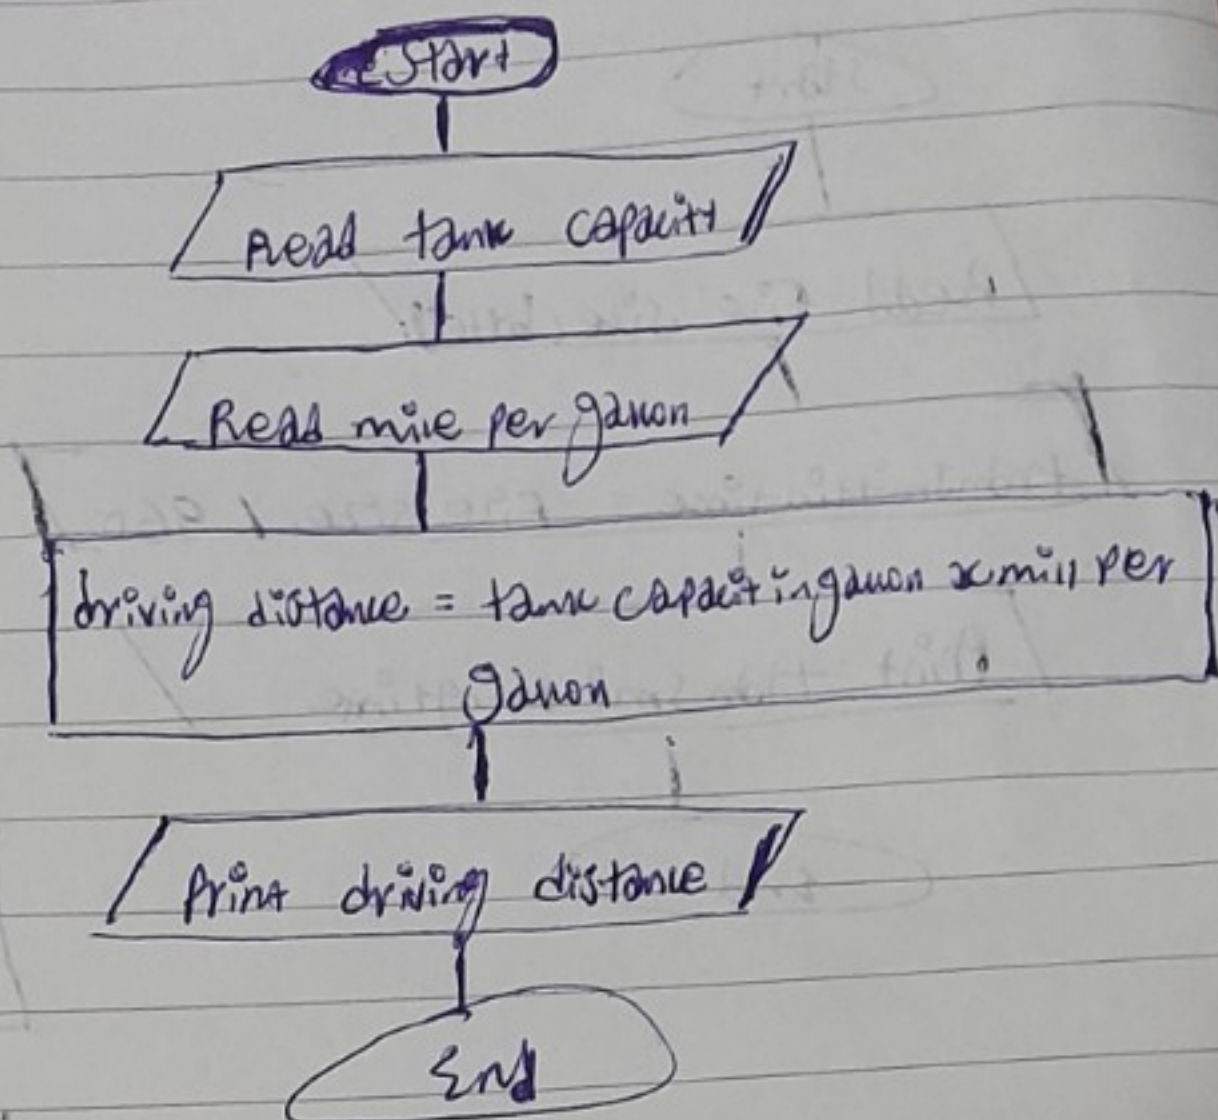 Start
Read tank capacity
Read mile per gallon
driving distance = tank capacit in gallon x mill per
gallon
Print driving distance
End